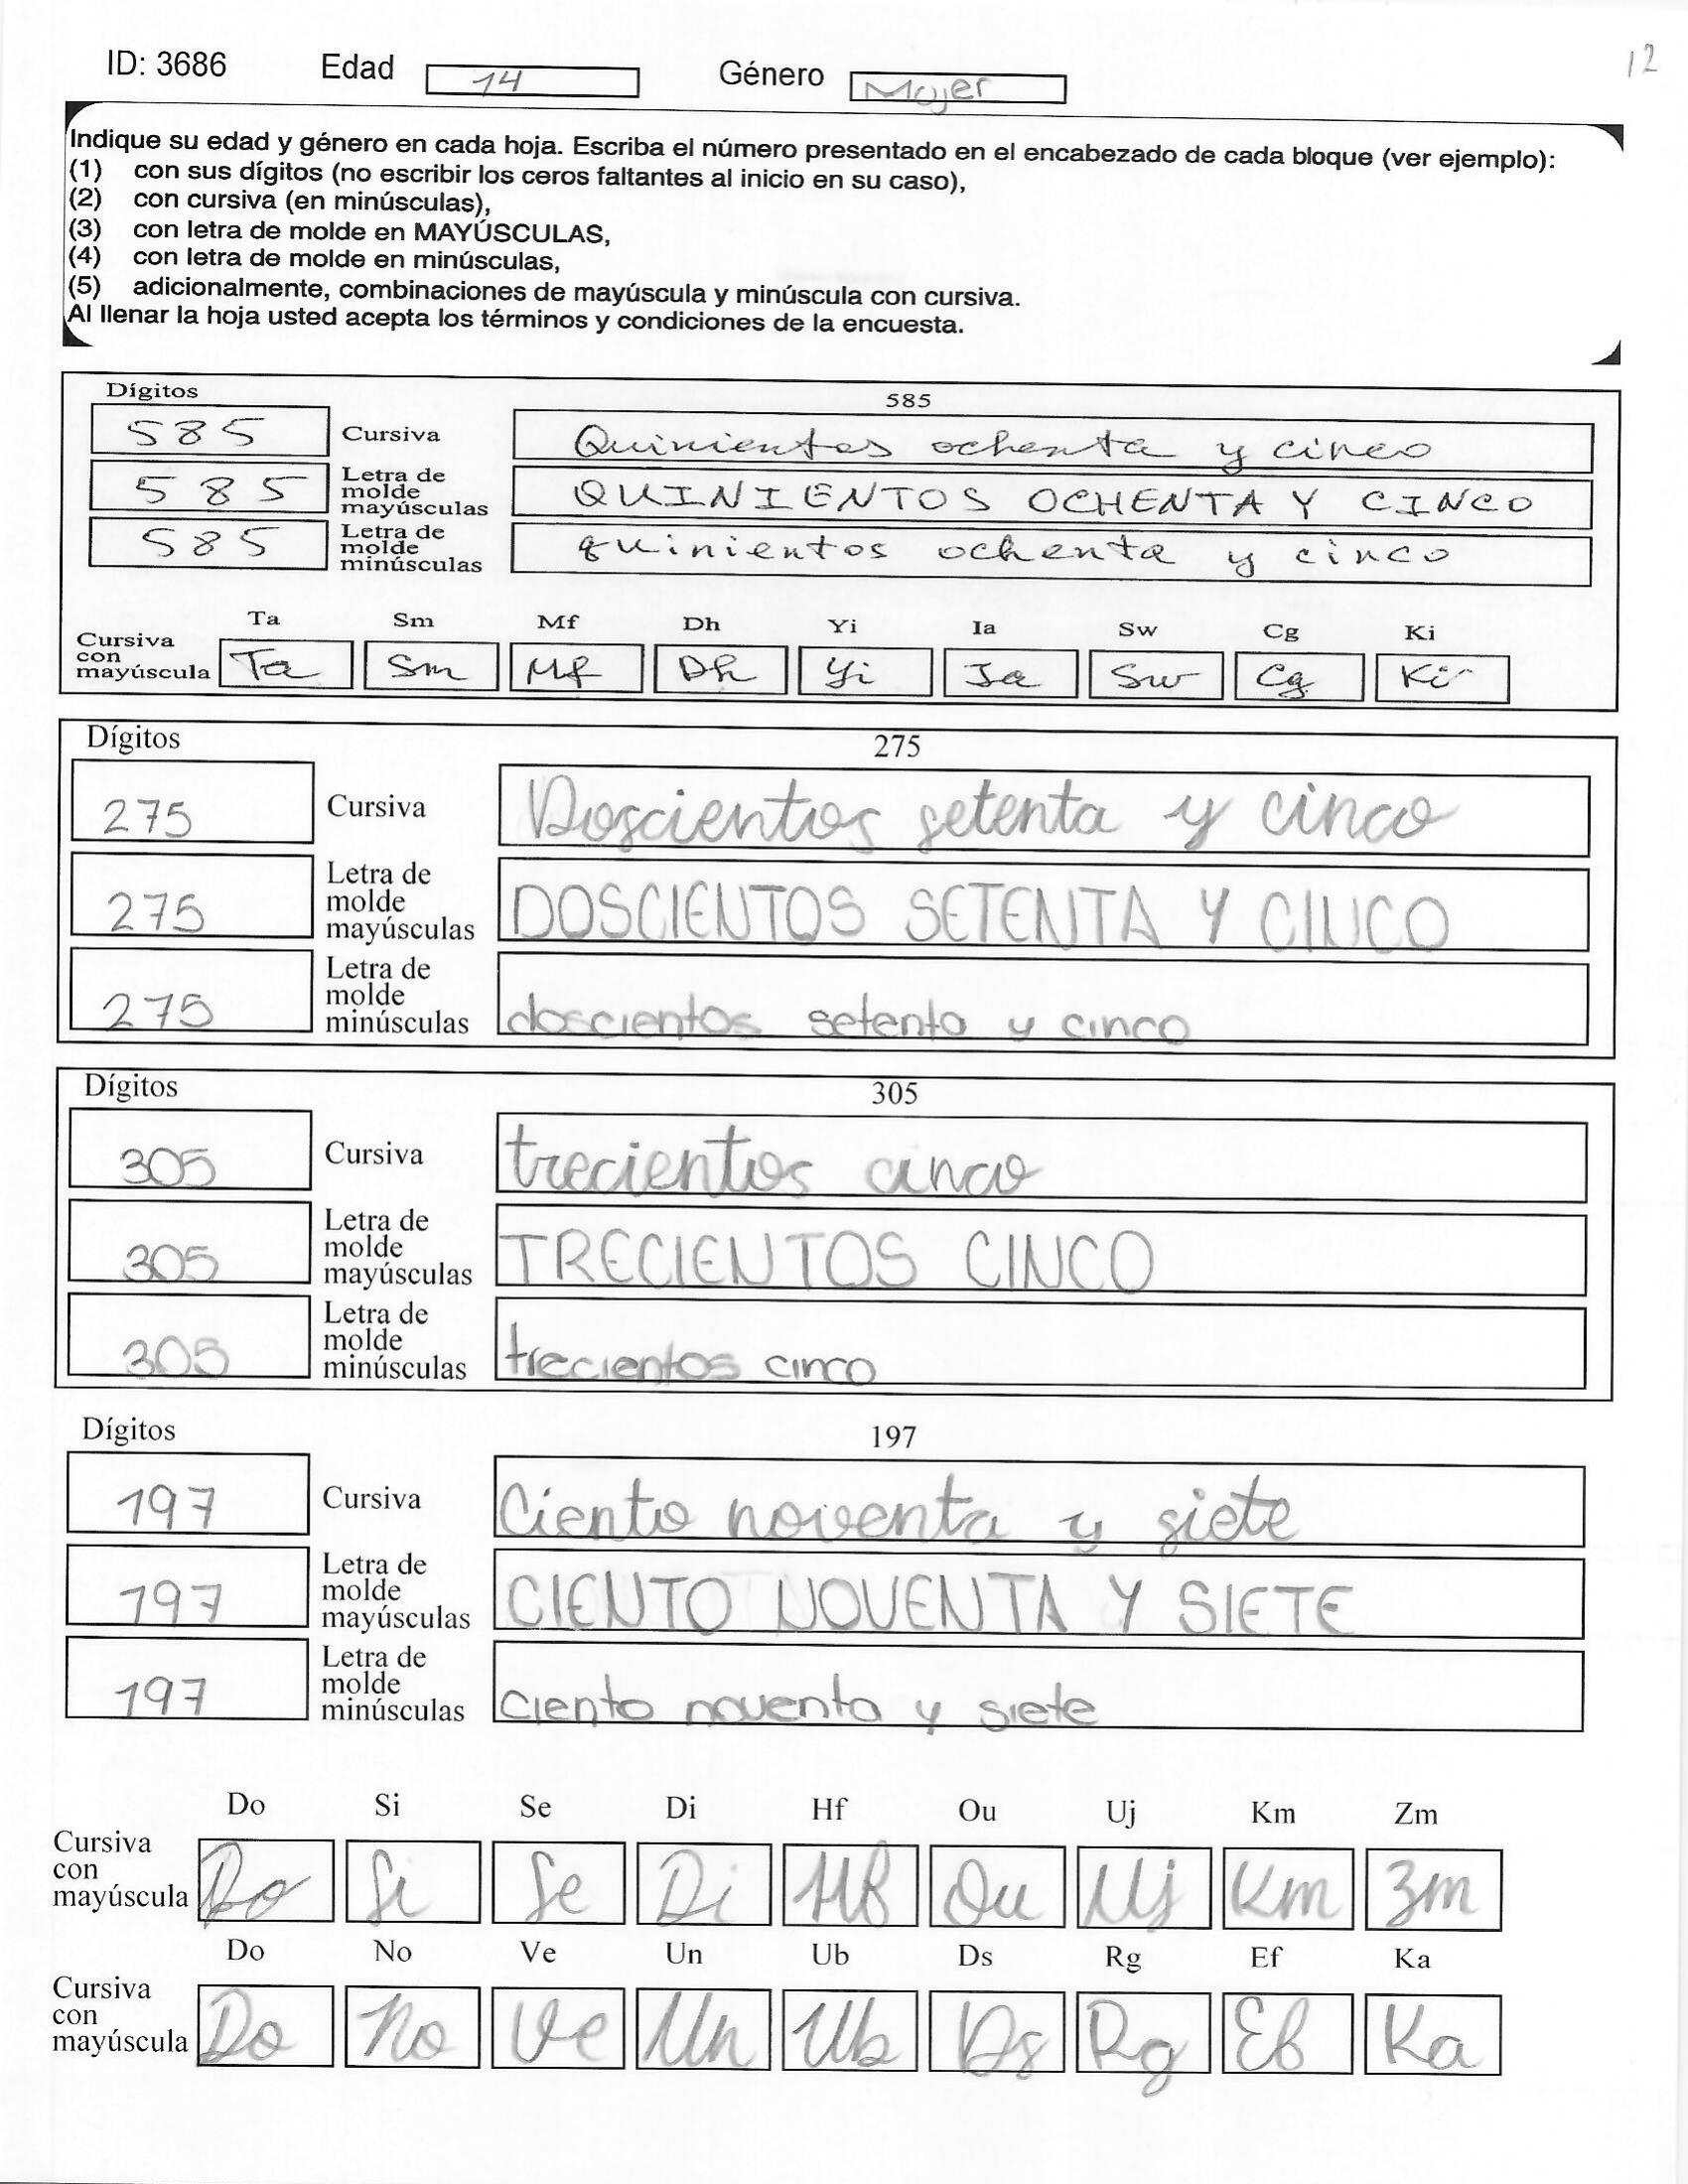 ID: 3686 Edad 14 Género Mujer 12
Indique su edad y género en cada hoja. Escriba el número presentado en el encabezado de cada bloque (ver ejemplo):
(1) con sus dígitos (no escribir los ceros faltantes al inicio en su caso),
(2) con cursiva (en minúsculas),
(3) con letra de molde en MAYÚSCULAS,
(4) con letra de molde en minúsculas,
(5) adicionalmente, combinaciones de mayúscula y minúscula con cursiva.
Al llenar la hoja usted acepta los términos y condiciones de la encuesta.
Dígitos 585
585 Cursiva Quinientos ochenta y cinco
585 Letra de molde mayúsculas QUINIENTOS OCHENTA Y CINCO
585 Letra de molde minúsculas quinientos ochenta y cinco
Ta Sm Mf Dh Yi Ia Sw Cg Ki
Cursiva con mayúscula Ta Sm Mf Dh Yi Ia Sw Cg Ki
Dígitos 275
275 Cursiva Doscientos setenta y cinco
275 Letra de molde mayúsculas DOSCIENTOS SETENTA Y CINCO
275 Letra de molde minúsculas doscientos setenta y cinco
Dígitos 305
305 Cursiva trecientos cinco
305 Letra de molde mayúsculas TRECIENTOS CINCO
305 Letra de molde minúsculas trecientos cinco
Dígitos 197
197 Cursiva Ciento noventa y siete
197 Letra de molde mayúsculas CIENTO NOVENTA Y SIETE
197 Letra de molde minúsculas ciento noventa y siete
Do Si Se Di Hf Ou Uj Km Zm
Cursiva con mayúscula Do Si Se Di Hf Ou Uj Km Zm
Do No Ve Un Ub Ds Rg Ef Ka
Cursiva con mayúscula Do No Ve Un Ub Ds Rg Ef Ka